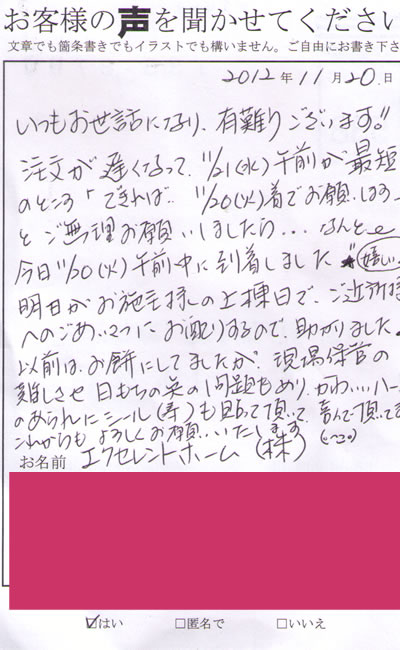 お客様の声を聞かせてください
文章でも箇条書きでもイラストでも構いません。ご自由にお書き下さ
2012年11月20日
いつもお世話になり、有難うございます!!
注文が遅くなって、11/21(水)午前が最短
のところ「できれば‥11/20(火)着でお願いします
とご無理お願いしましたら...なんと
今日11/20(火)午前中に到着しました★嬉しい
明日がお施主様の上棟日で、ご近所様
へのごあいさつにお配りするので、助かりました。
以前はお餅にしてましたが、現場保管の
難しさや日もちの 問題もあり、かわいいハー
のあられにシール(寿)も貼って頂いて、喜んで頂いてま
これからもよろしくお願いいたします
お名前 エクセレントホーム(株)
☑はい □匿名で □いいえ